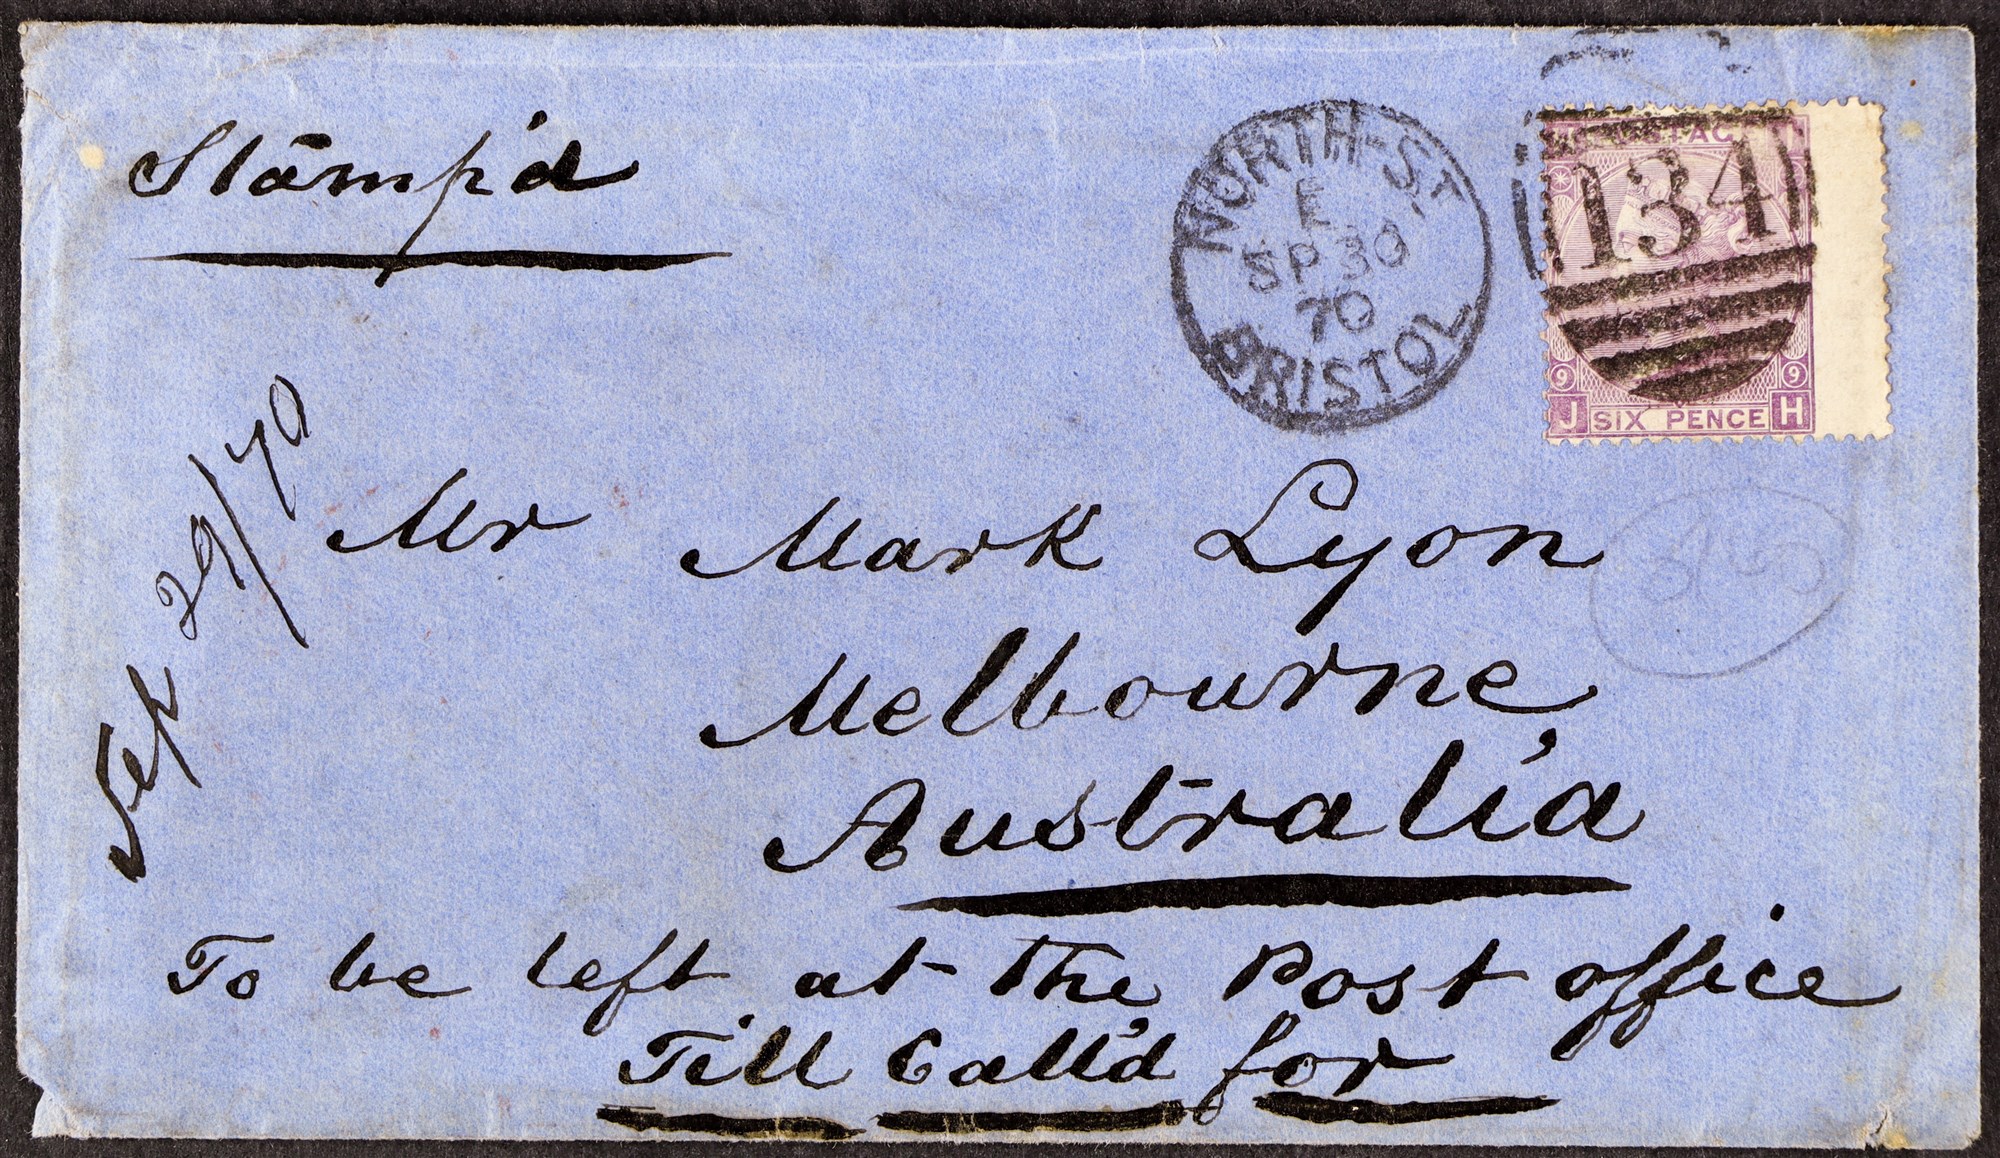 Stamp'd
NORTH-ST
E
SP 30
70
BRISTOL
POSTAG
134
9 9
J SIX PENCE H
Sep 29/70
Mr Mark Lyon
Melbourne
Australia
To be left at the Post office
Till Call'd for